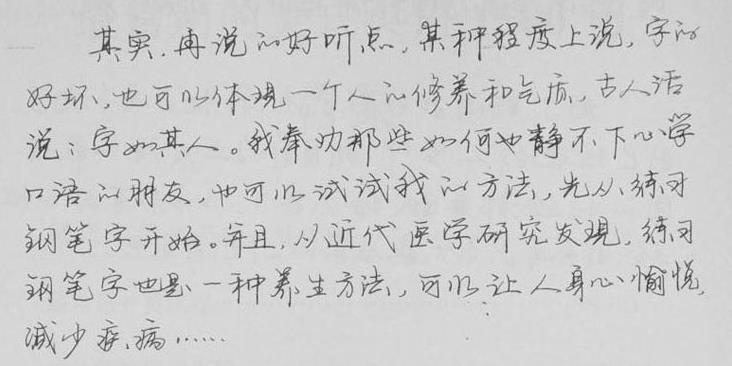 其实,再说的好听点,某种程度上说,字的
好坏,也可以体现一个人的修养和气质,古人话
说:字如其人。我奉劝那些如何也静不下心学
口语的朋友,也可以试试我的方法,先从练习
钢笔字开始。并且,从近代医学研究发现,练习
钢笔字也是一种养生方法,可以让人身心愉悦,
减少疾病……